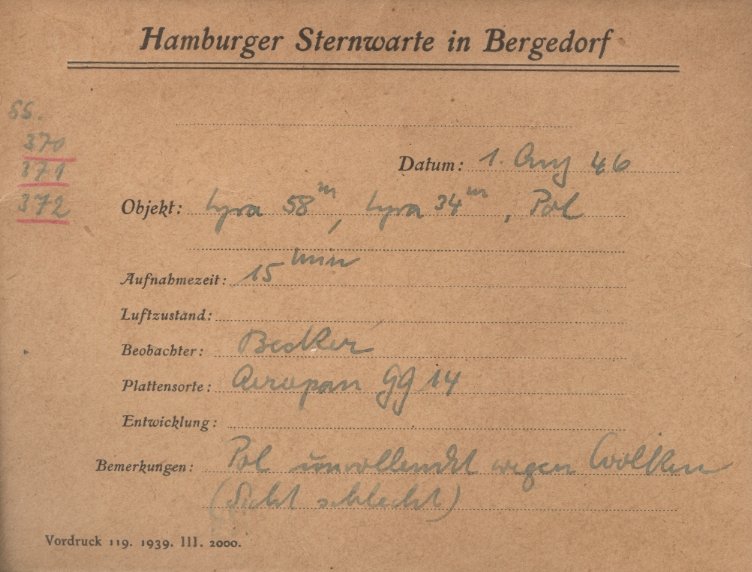 Hamburger Sternwarte in Bergedorf
SS.
370
371
372
Datum: 1. Aug 46
Objekt: Lyra 58m, Lyra 34m, Pol
Aufnahmezeit: 15 min
Luftzustand:
Beobachter: Becker
Plattensorte: Aeropan GG 14
Entwicklung:
Bemerkungen: Pol unvollendet wegen Wolken
(Sicht schlecht)
Vordruck 119. 1939. III. 2000.